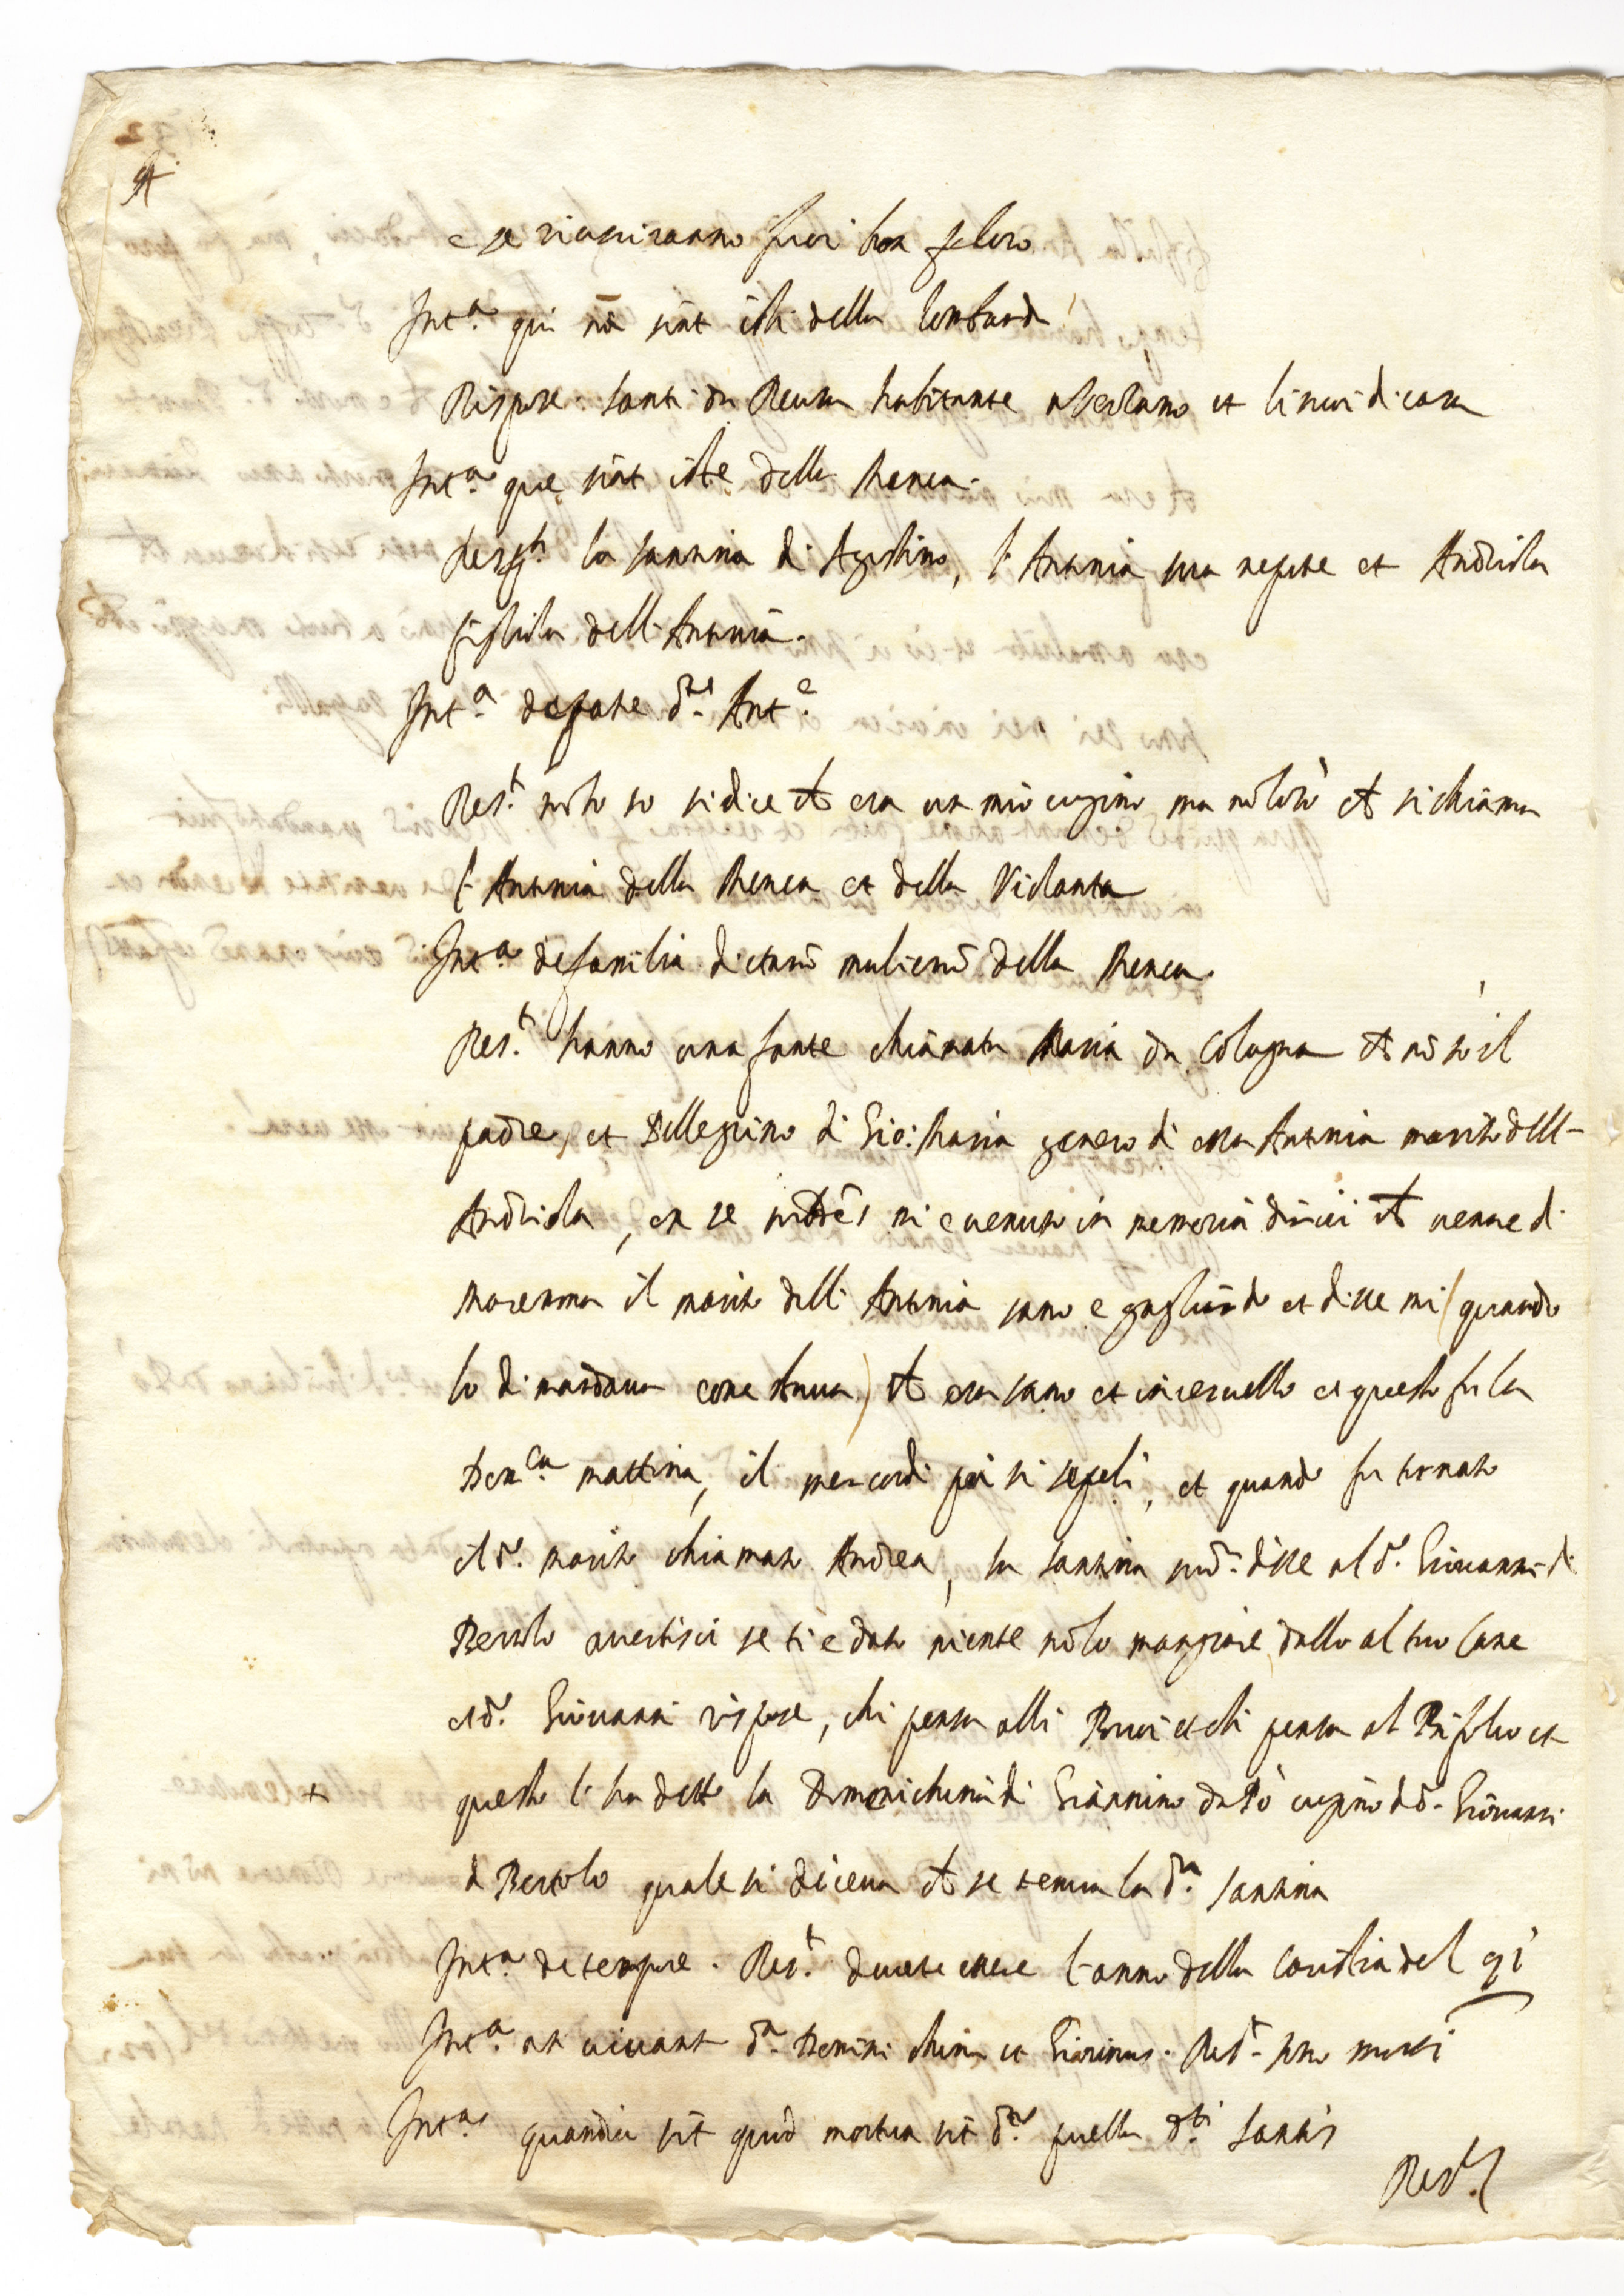 e se riuquiranno fuor bon fatora
Int.a qui nõ sint isti della lombarda
Rispose. Santi da Reura habitante a Verlano et li suoi di casa
Int.a que sint iste della Menca.
Resp.t la Santina di Agostino, l'Antonia sua nepote et Andriola
figliola dell'Antonia.
Int.a de patre d.e Ant.e
Res.t nõ lo so si dice ch era un mio cugino ma nõ lo so ch si chiama
l'Antonia della Menca et della Violanta
Int.a de familia dictarũ mulierũ della Menca.
Res.t hanno una fante chiamata Maria da Cologna ch nõ so il
padre, et Pellegrino di Gio: Maria genero di essa Antonia marito dell'
Andriola, et se mi è venuto in memoria dirui ch venne di
Maremma il marito dell'Antonia sano e gagliardo et disse mi (quando
lo dimandaua come staua) ch era sano et in ceruello et questo fu la
Dom.ca mattina, il mercordi poi si sepeli, et quando fu tornato
il d.o marito chiamato Andrea, la Santina sud.a disse al d.o Giouanni di
Bertolo auertisci se ti è dato niente nõ lo mangiare, dallo al tuo cane
et d.o Giouanni rispose, chi pensa alli Boui et chi pensa al Bifolco et
+ questo l'ha detto la Domenichina di Giannino da Pò cugino d.o Giouanni
di Bertolo quale si diceua ch se teneua la d.a Santina
Int.a de tempore. Res.t douete essere l'anno della carestia del 91
Int.a an viuant d.a Domini china et Gioninus. Res.t sono morti
Int.a quandiu sit quod mortua sit d.a puella d.ti Santis
Res.t